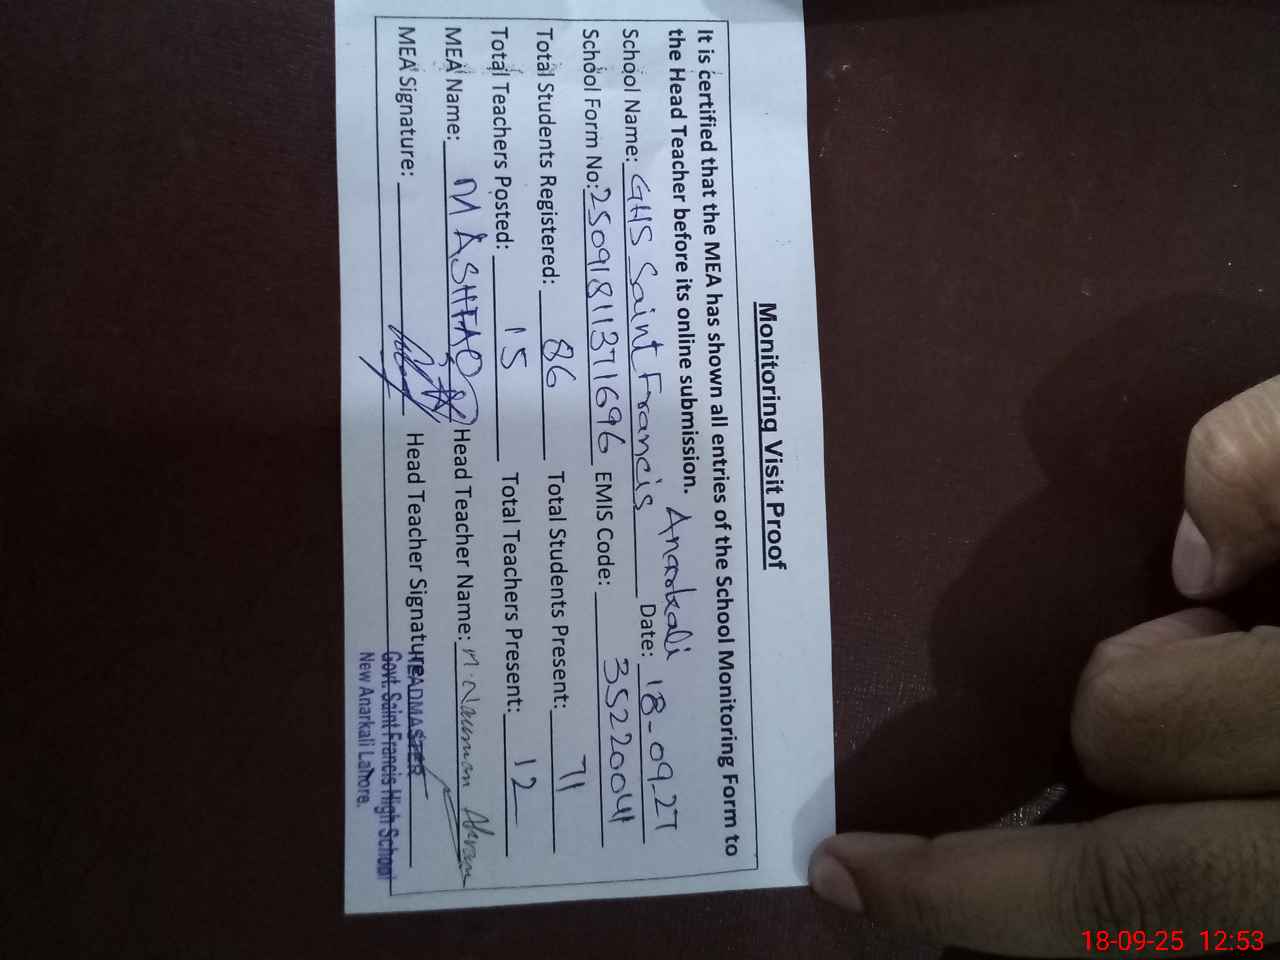 Monitoring Visit Proof
It is certified that the MEA has shown all entries of the School Monitoring Form to
the Head Teacher before its online submission.
School Name: GHS Saint Francis Anarkali Date: 18-09-27
School Form No: 25091811371696 EMIS Code: 35220041
Total Students Registered: 86 Total Students Present: 71
Total Teachers Posted: 15 Total Teachers Present: 12
MEA Name: M ASHFAQ Head Teacher Name: M. Nauman Akram
MEA Signature: Head Teacher Signature
HEADMASTER
Govt. Saint Francis High School
New Anarkali Lahore.
18-09-25 12:53